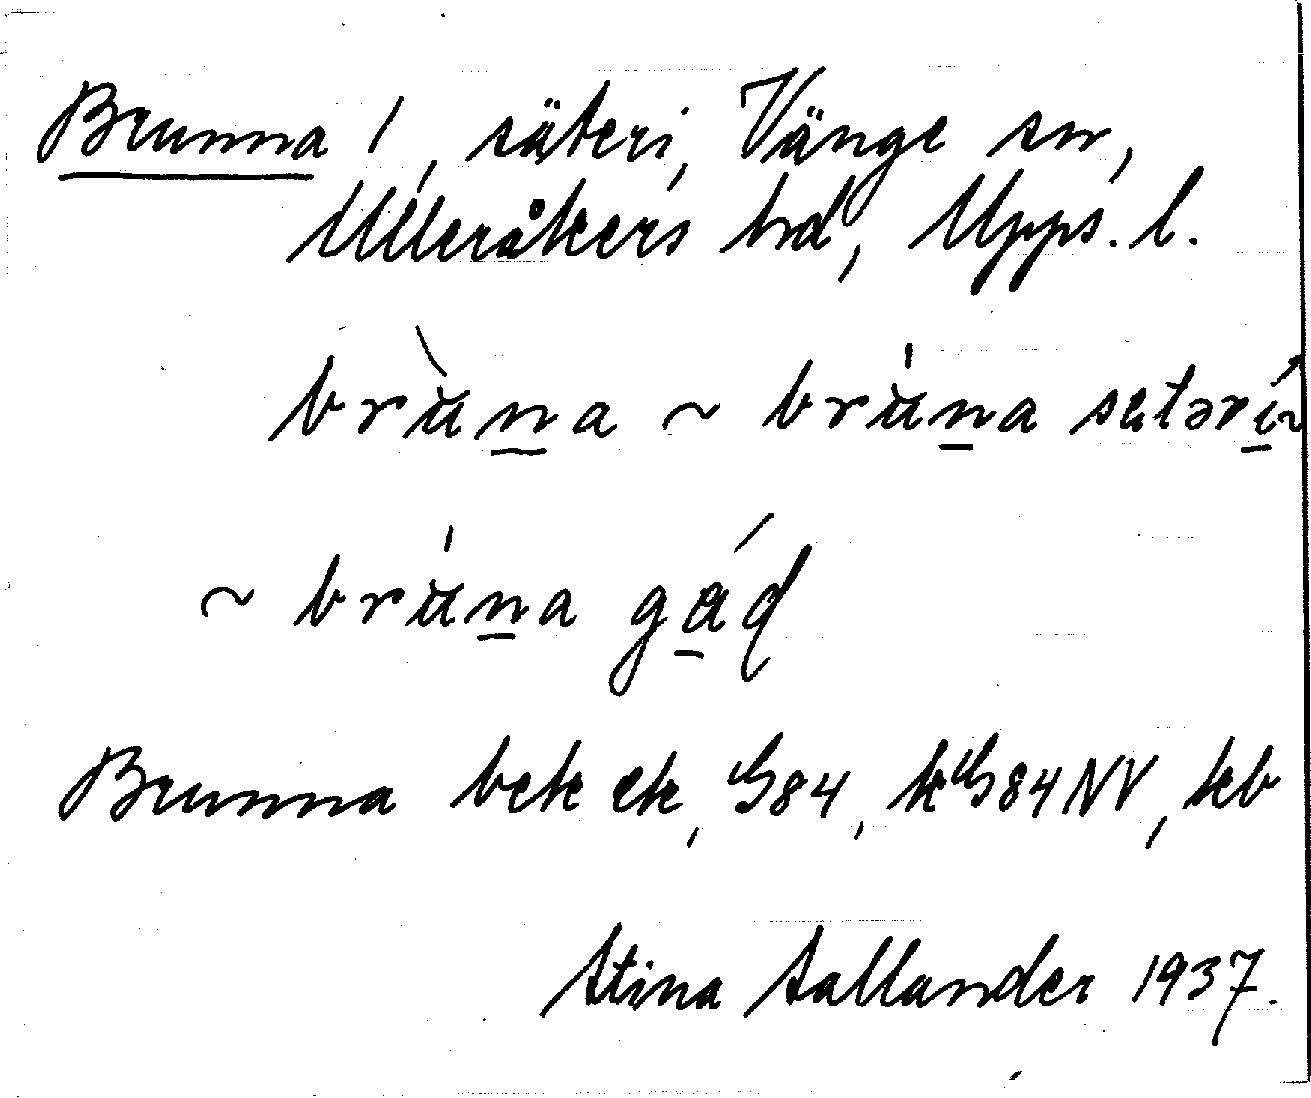 Brunna 1, säteri, Vänge sn,
Ulleråkers hd, Upps. l.
brùna ~ brúna sätərí
~ brúna gáḍ
Brunna bek ek, G84, kG84NV, kb
Stina Sallander 1937.